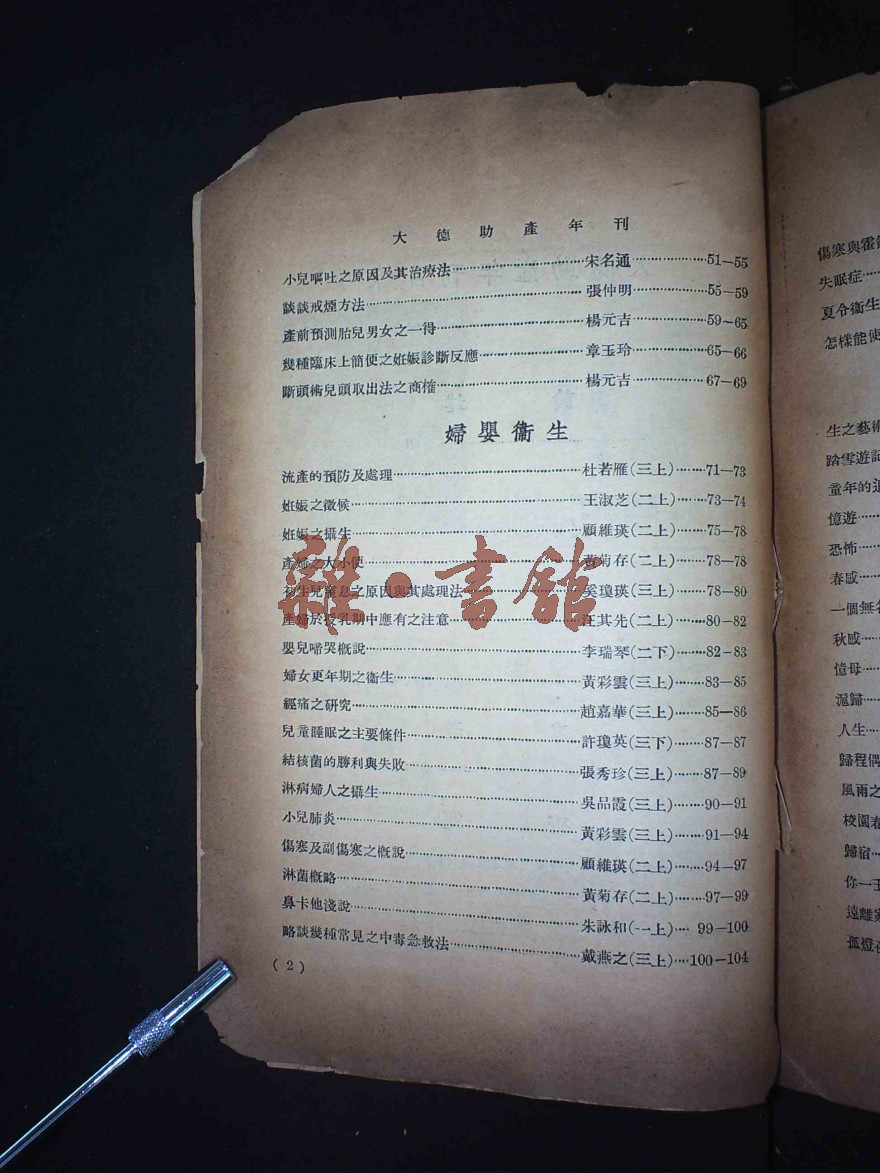 大德助產年刊
小兒嘔吐之原因及其治療法……宋名通……51—55
談談戒煙方法……張仲明……55—59
產前預測胎兒男女之一得……楊元吉……59—65
幾種臨床上簡便之姙娠診斷反應……章玉玲……65—66
斷頭術兒頭取出法之商榷……楊元吉……67—69
婦嬰衞生
流產的預防及處理……杜若雁(三上)……71—73
姙娠之徵候……王淑芝(二上)……73—74
姙娠之攝生……顧維瑛(二上)……75—78
產婦之大小便……黃菊存(二上)……78—78
初生兒窒息之原因與其處理法……奚瓊瑛(三上)……78—80
產婦於授乳期中應有之注意……汪其先(二上)……80—82
嬰兒啼哭概說……李瑞琴(二下)……82—83
婦女更年期之衞生……黃彩雲(三上)……83—85
經痛之研究……趙嘉華(三上)……85—86
兒童睡眠之主要條件……許瓊英(三下)……87—87
結核菌的勝利與失敗……張秀珍(三上)……87—89
淋病婦人之攝生……吳品霞(三上)……90—91
小兒肺炎……黃彩雲(三上)……91—94
傷寒及副傷寒之概說……顧維瑛(二上)……94—97
淋菌概略……黃菊存(二上)……97—99
鼻卡他淺說……朱詠和(一上)…99—100
略談幾種常見之中毒急救法……戴燕之(三上)…100—104
(2)
雜·書館
傷寒與霍
失眠症……
夏令衞生
怎樣能使
生之藝術
踏雪遊記
童年的追
憶遊……
恐怖……
春感……
一個無名
秋感……
憶母……
滬歸……
人生……
歸程偶
風雨之
校園春
歸宿……
你一王
遠離家
孤燈